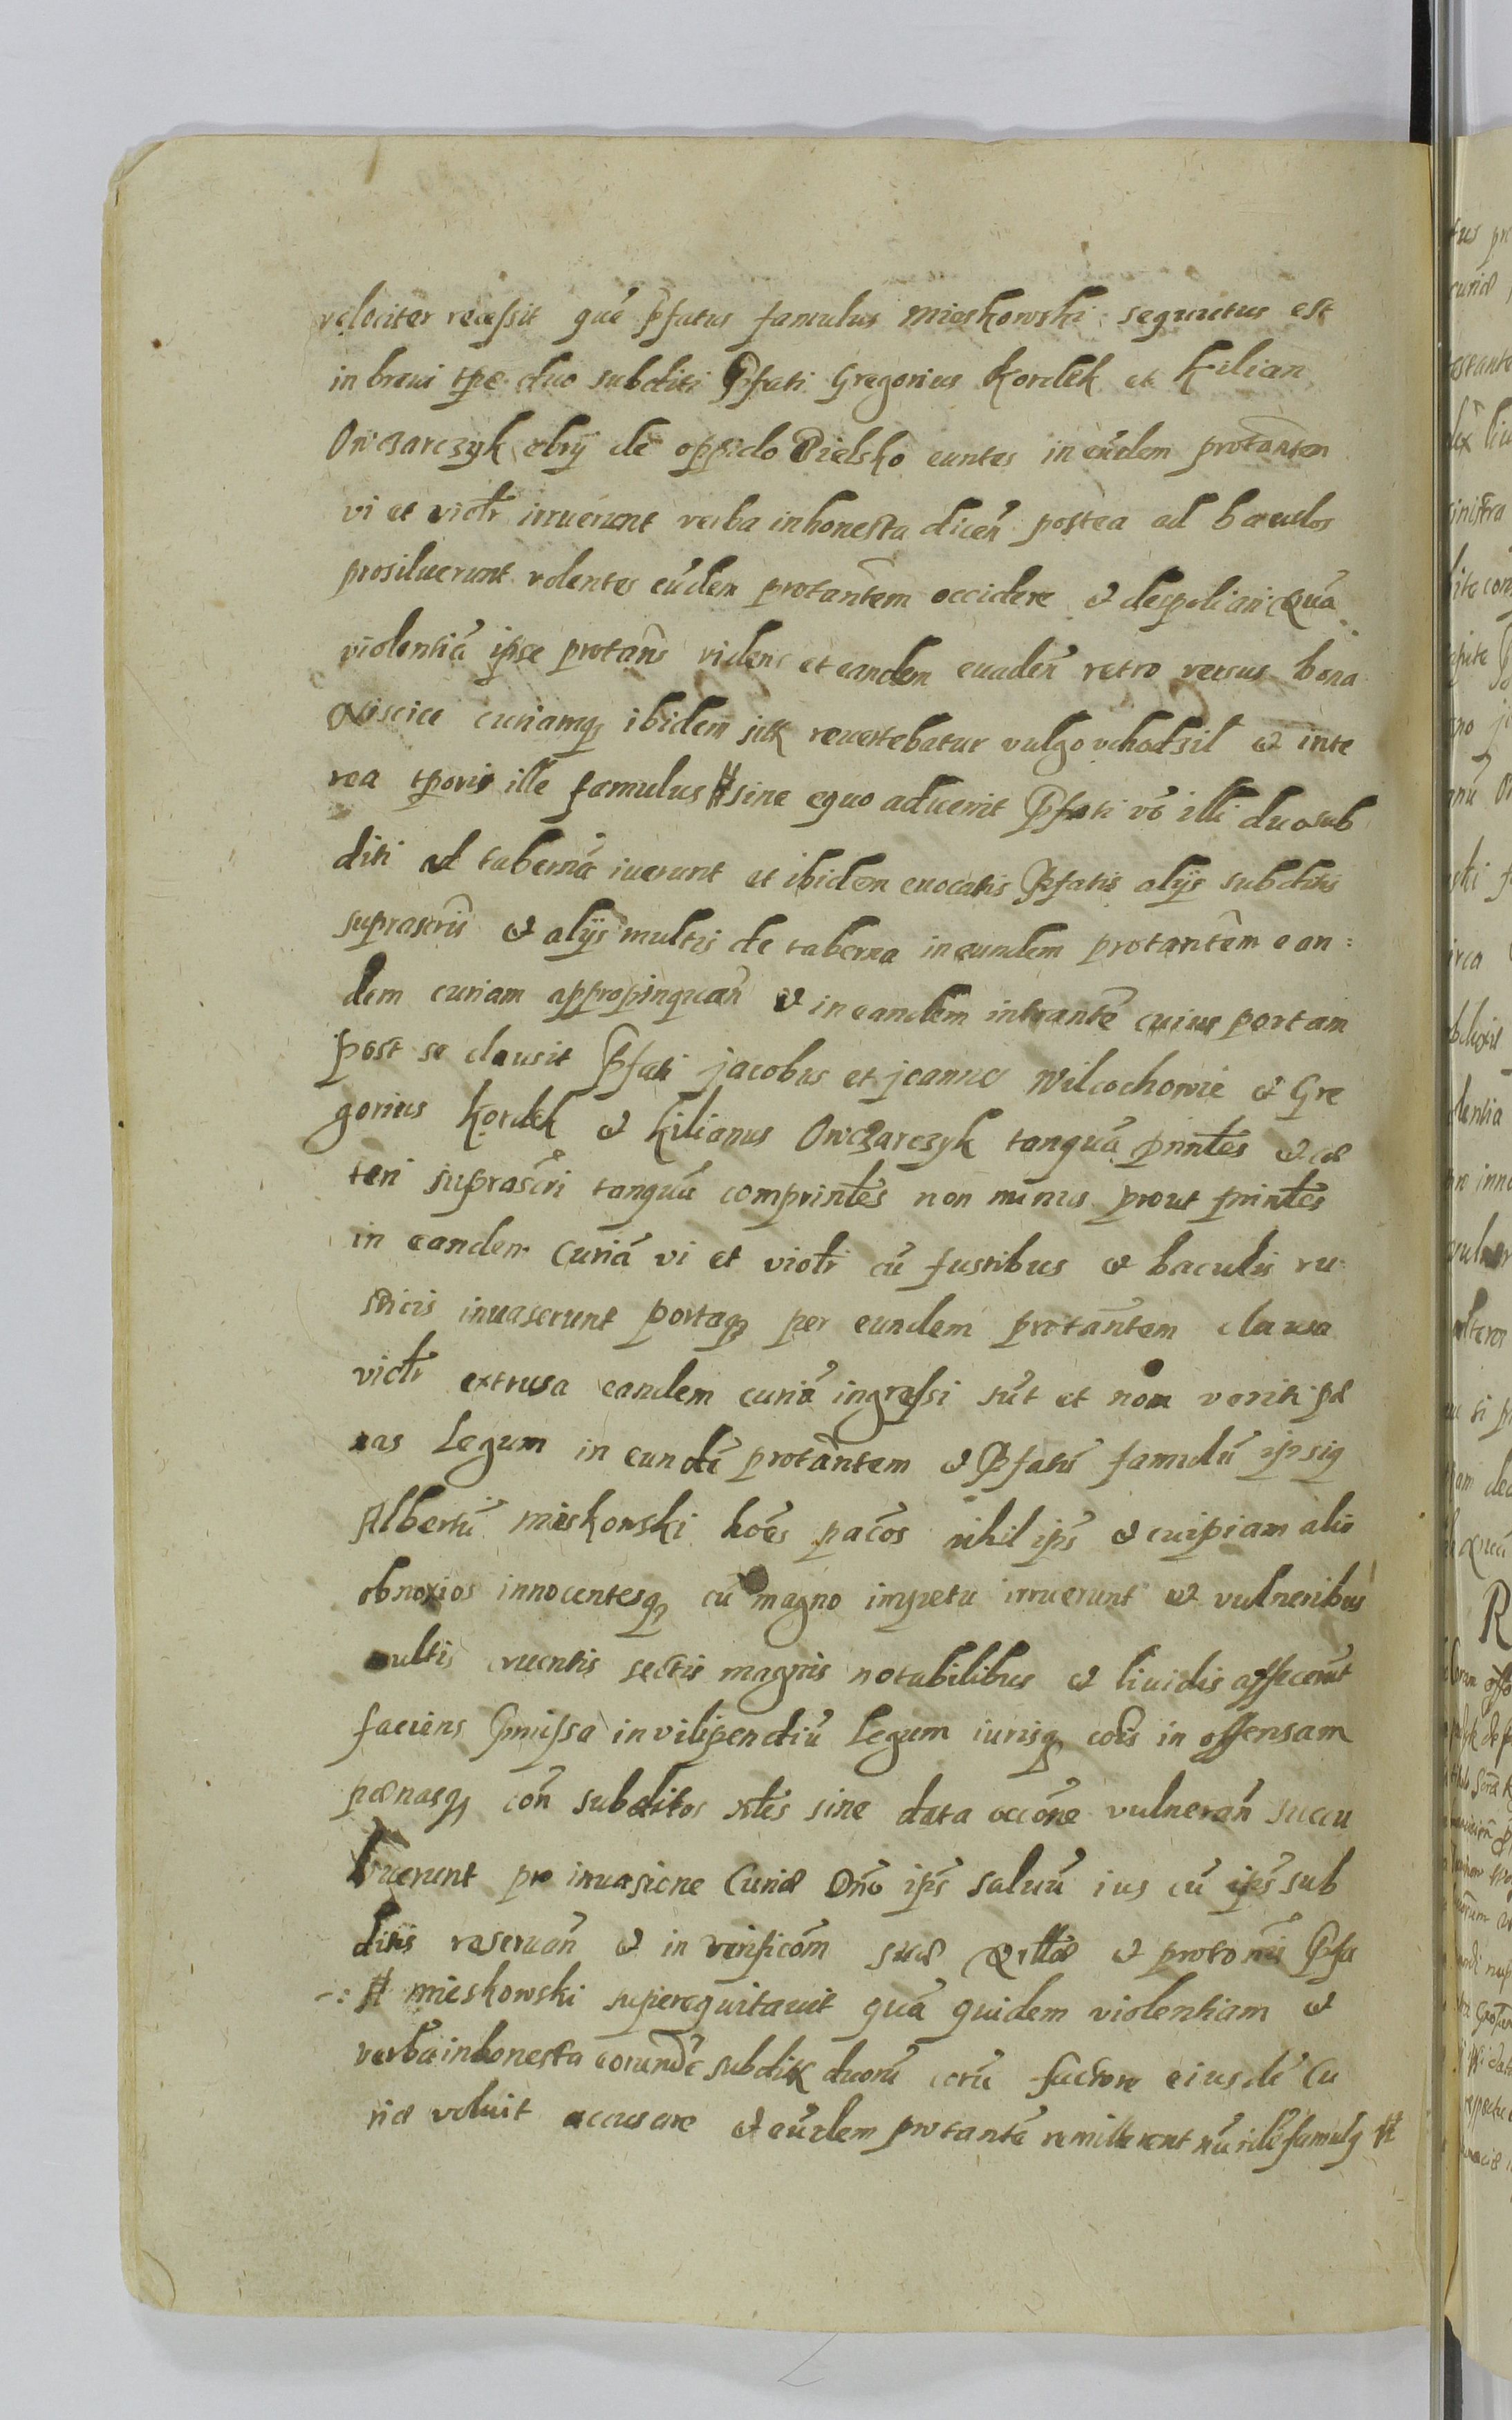 velociter recessit quē p̄fatus famulus mieskowski sequutus est
in breui tp̄e duo subditi p̄fati Gregorius Kordek et Kilian
Owczarczyk ebrij de oppido Bielsko euntes in eūdem protan̄tem
vi et violr̄ irruerunt verba inhonesta dicen̄ postea ad baculos
prosiluerunt volentes eūdem protan̄tem occidere & despoliari Quā
violentiā ipse protan̄s videns et eandem euaden̄ retro versus bona
curiamq ibidem reuertebatur vulgo vchodzil & inte
rea tp̄oris ille famulus # sine equo aduenit p̄fati vō illi duo sub
diti ad tabernā iuerunt et ibidem euocatis p̄fatis alijs subditis
suprascrīs & alijs multis de taberna in eundem protan̄tem ean:
dem curiam appropinquan̄ & in eandem intrantē cuius portam
post se clausit p̄fati jacobus et joannes Wilcochowie & Gre
gorius Kordek & Kilianus Owczarczyk tanquā prin̄tes & cæ
teri suprascr̄i tanquā comprin̄tes non minus prout prin̄tes
in eandem Curiā vi et violr̄ cū fustibus & baculis ru:
sticis inuaserunt portaq per eundem protan̄tem clausa
violr̄ extrusa eandem curiā ingressi sūt et non veriti pæ
nas Legum in eundē protan̄tem & p̄fatū famulū ipsiq
Albertū mieskowski hoēs pacōs nihil ip̄s & cuipiam alio
obnoxios innocentesq cū magno impetu irruerunt & vulneribus
multis cruentis sectis magnis notabilibus & liuidis affecerūt
faciens p̄missa in vilipendiū Legum iurisq cōis in offensam
pænasq con̄ subditos sine data occōne vulneran̄ succu
buerunt pro inuasione Curiæ Dn̄o ip̄s saluū ius cū ip̄s sub
ditis reseruan̄ & in verificōm suæ & p̄fa
-: # mieskowski superequitauit quā quidem violentiam &
verba inhonesta eorundē duorū corā factore eiusdē Cu
riæ voluit accusare & eūdem protantē famulq #